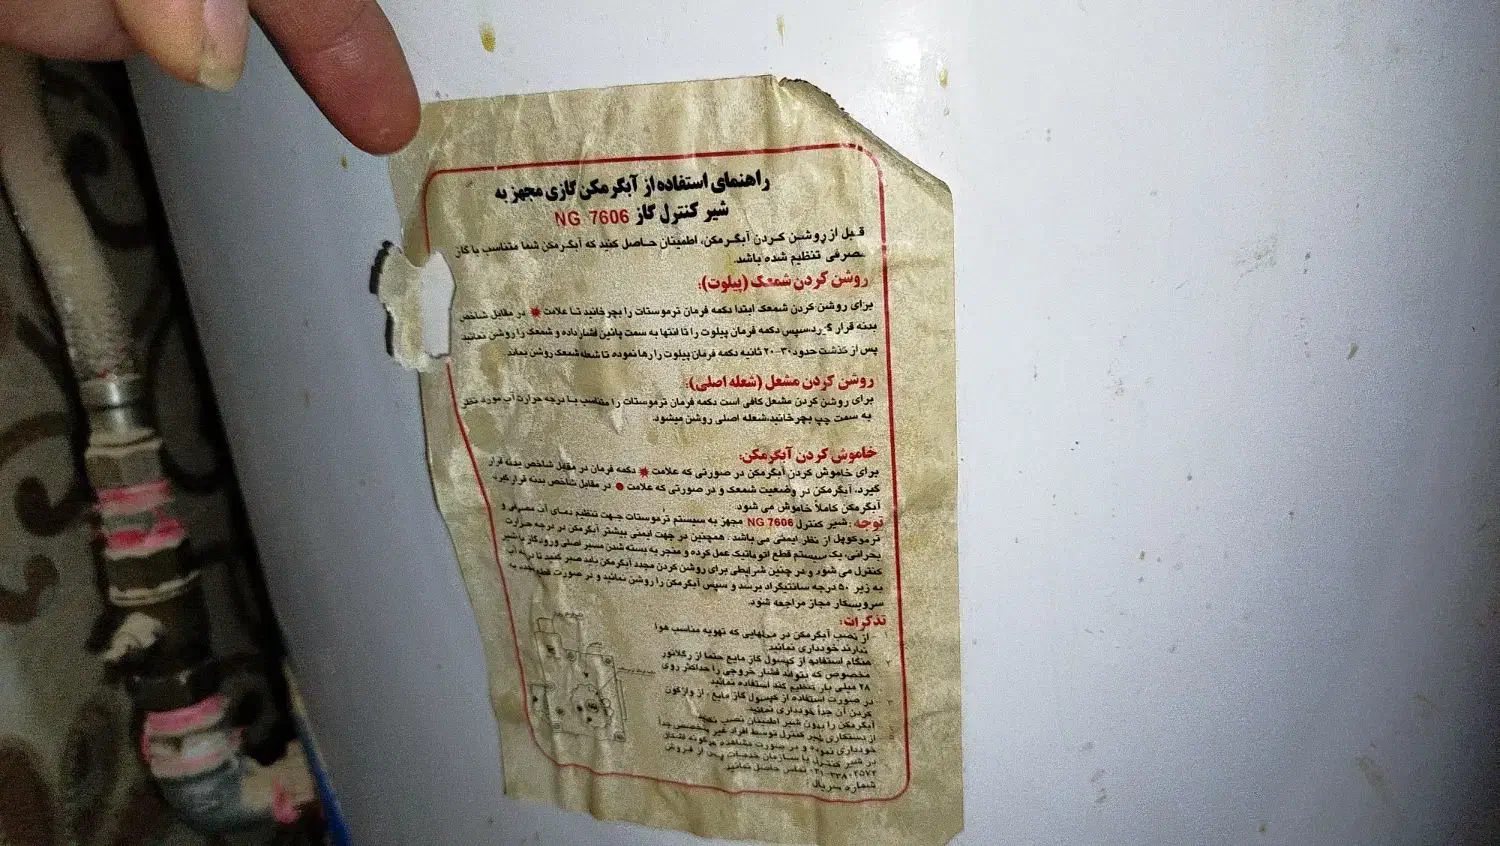 راهنمای استفاده از آبگرمکن گازی مجهز به
شیر کنترل گاز NG 7606
قبل از روشن کردن آبگرمکن، اطمینان حاصل کنید که آبگرمکن شما متناسب با گاز
مصرفی تنظیم شده باشد.
روشن کردن شمعک (پیلوت):
برای روشن کردن شمعک ابتدا دکمه فرمان ترموستات را بچرخانید تا علامت در مقابل شاخص
بدنه قرار گیرد،سپس دکمه فرمان پیلوت را تا انتها به سمت پائین فشار داده و شمعک را روشن نمائید
پس از گذشت حدود ۳۰-۲۰ ثانیه دکمه فرمان پیلوت را رها نموده تا شعله شمعک روشن بماند.
روشن کردن مشعل (شعله اصلی):
برای روشن کردن مشعل کافی است دکمه فرمان ترموستات را متناسب با درجه حرارت آب مورد نظر
به سمت چپ بچرخانید،شعله اصلی روشن میشود.
خاموش کردن آبگرمکن:
برای خاموش کردن آبگرمکن در صورتی که علامت دکمه فرمان در مقابل شاخص بدنه قرار
گیرد، آبگرمکن در وضعیت شمعک و در صورتی که علامت در مقابل شاخص بدنه قرار گیرد
آبگرمکن کاملاً خاموش می شود.
توجه : شیر کنترل NG 7606 مجهز به سیستم ترموستات جهت تنظیم دمای آب مصرفی و
ترموکوپل از نظر ایمنی می باشد . همچنین در جهت ایمنی بیشتر آبگرمکن در درجه حرارت
بحرانی، یک سیستم قطع اتوماتیک عمل کرده و منجر به بسته شدن مسیر اصلی ورود گاز به شیر
کنترل می شود و در چنین شرایطی برای روشن کردن مجدد آبگرمکن باید صبر کنید تا درجه آب
به زیر ۵۰ درجه سانتیگراد برسد و سپس آبگرمکن را روشن نمائید و در صورت قطع مجدد به
سرویسکار مجاز مراجعه شود.
تذکرات:
۱ از نصب آبگرمکن در محلهایی که تهویه مناسب هوا
ندارند خودداری نمائید.
۲ هنگام استفاده از کپسول گاز مایع حتما از رگلاتور
مخصوص که بتواند فشار خروجی را حداکثر روی
۲۸ میلی بار تنظیم کند استفاده نمائید.
۳ در صورت استفاده از کپسول گاز مایع ، از واژگون
کردن آن جداً خودداری نمائید.
آبگرمکن را بدون شیر اطمینان نصب نکنید
از دستکاری شیر کنترل توسط افراد غیر متخصص جداً
خودداری نموده و در صورت مشاهده هرگونه اشکال
در شیر کنترل با سازمان خدمات پس از فروش
تماس حاصل نمائید
شماره سریال :